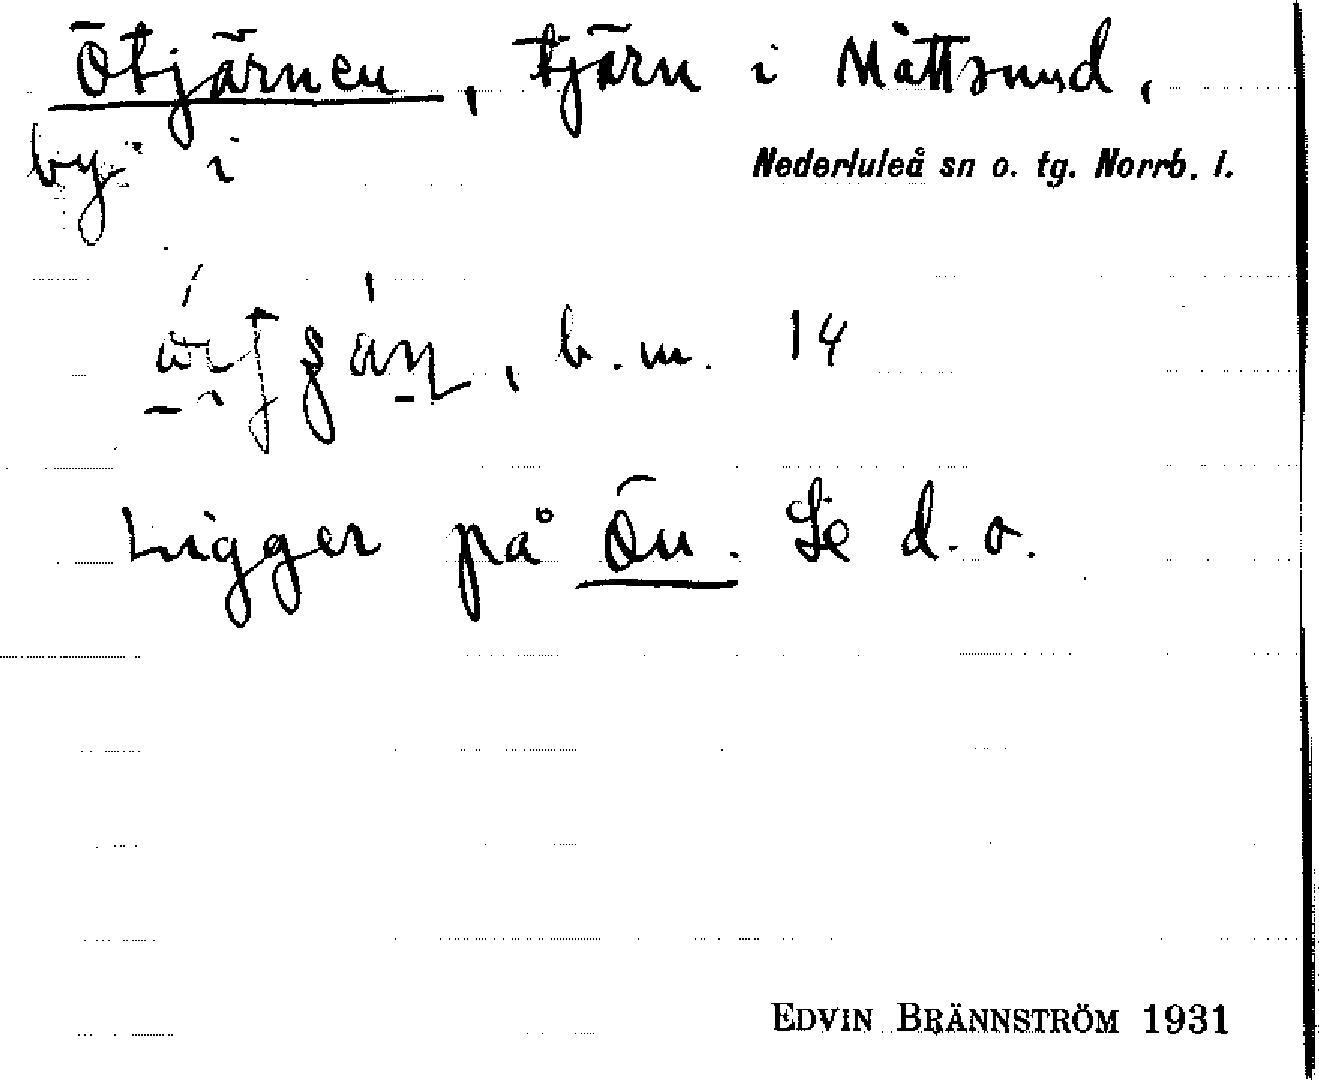 Ötjärnen, tjärn i Måttsund,
by i
Nederluleå sn o. tg. Norrb. l.
, b.m. 14
Ligger på Ön. Se d.o.
EDVIN BRÄNNSTRÖM 1931